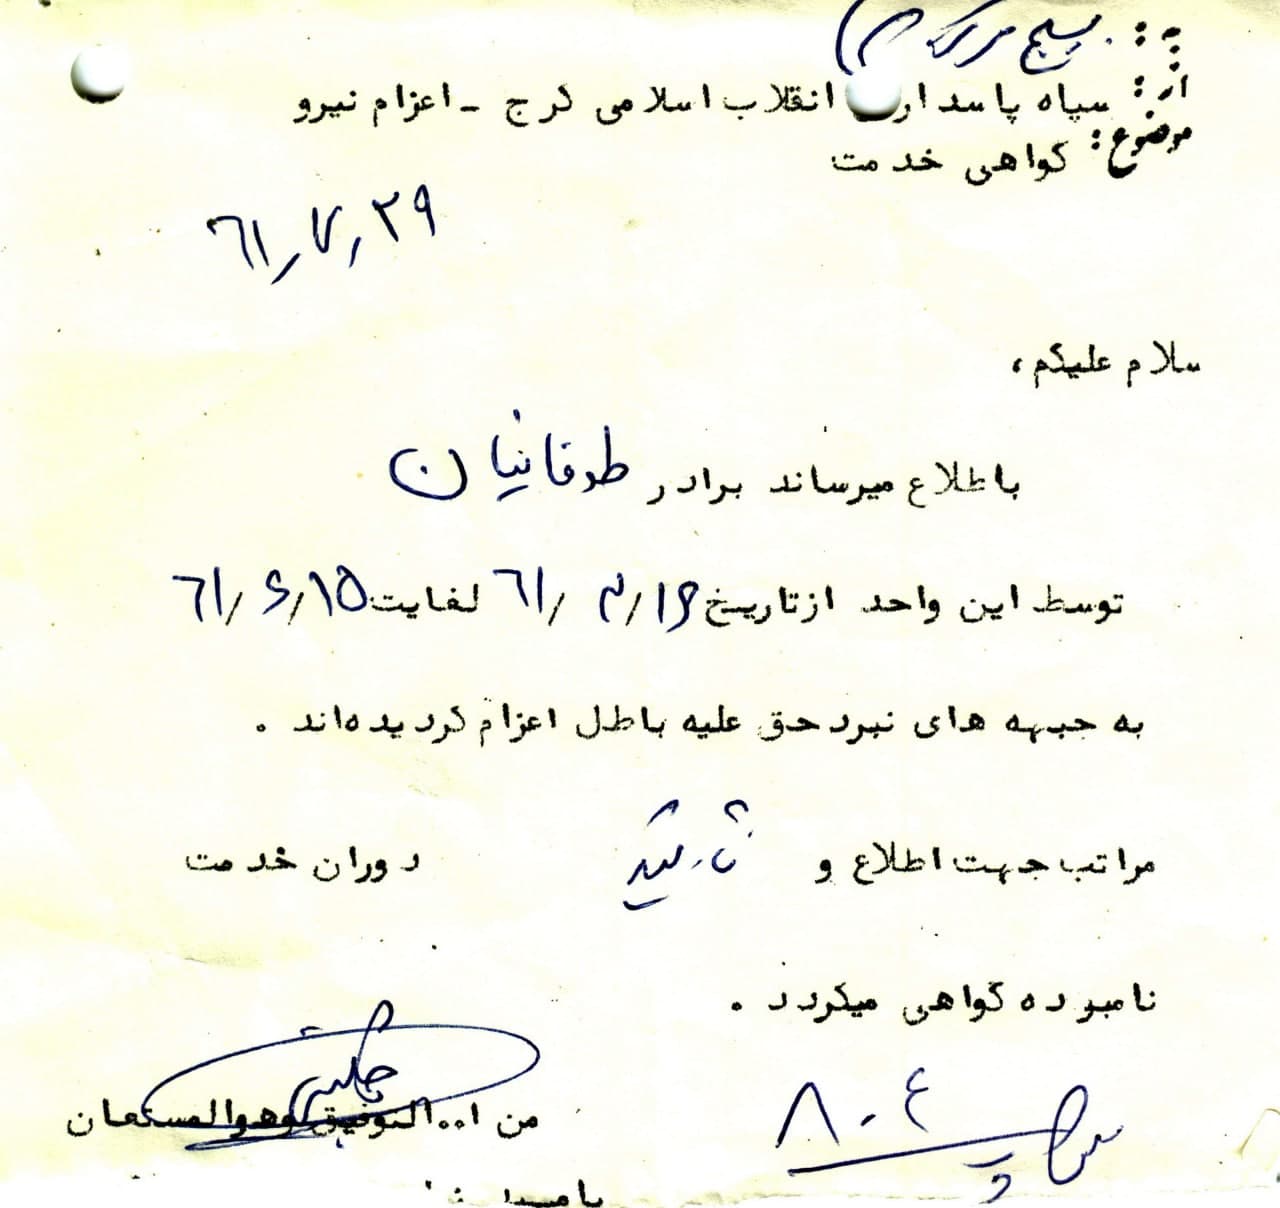 به : بسیج مرکز
از : سپاه پاسداران انقلاب اسلامی کرج ـ اعزام نیرو
موضوع : گواهی خدمت
۶۱/۷/۲۹
سلام علیکم ،
باطلاع میرساند برادر طوفانیان
توسط این واحد ازتاریخ ۶۱/۳/۱۶ لغایت ۶۱/۶/۱۵
به جبهه های نبرد حق علیه باطل اعزام گردیده‌اند .
مراتب جهت اطلاع و دوران خدمت
نامبرده گواهی میگردد .
من ا.. التوفیق و هو المستعان
۸۰۴